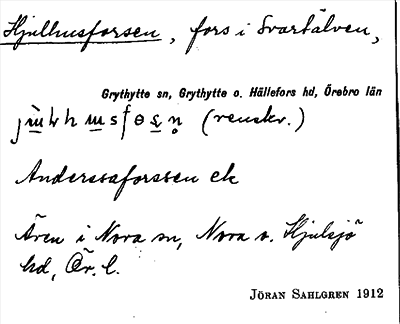 Hjulhusforsen, fors i Svartälven,
Grythytte sn, Grythytte o. Hällefors hd, Örebro län
(renskr.)
Anderssaforssen ek
Även i Nora sn, Nora o. Hjulsjö
hd, Ör. l.
JÖRAN SAHLGREN 1912